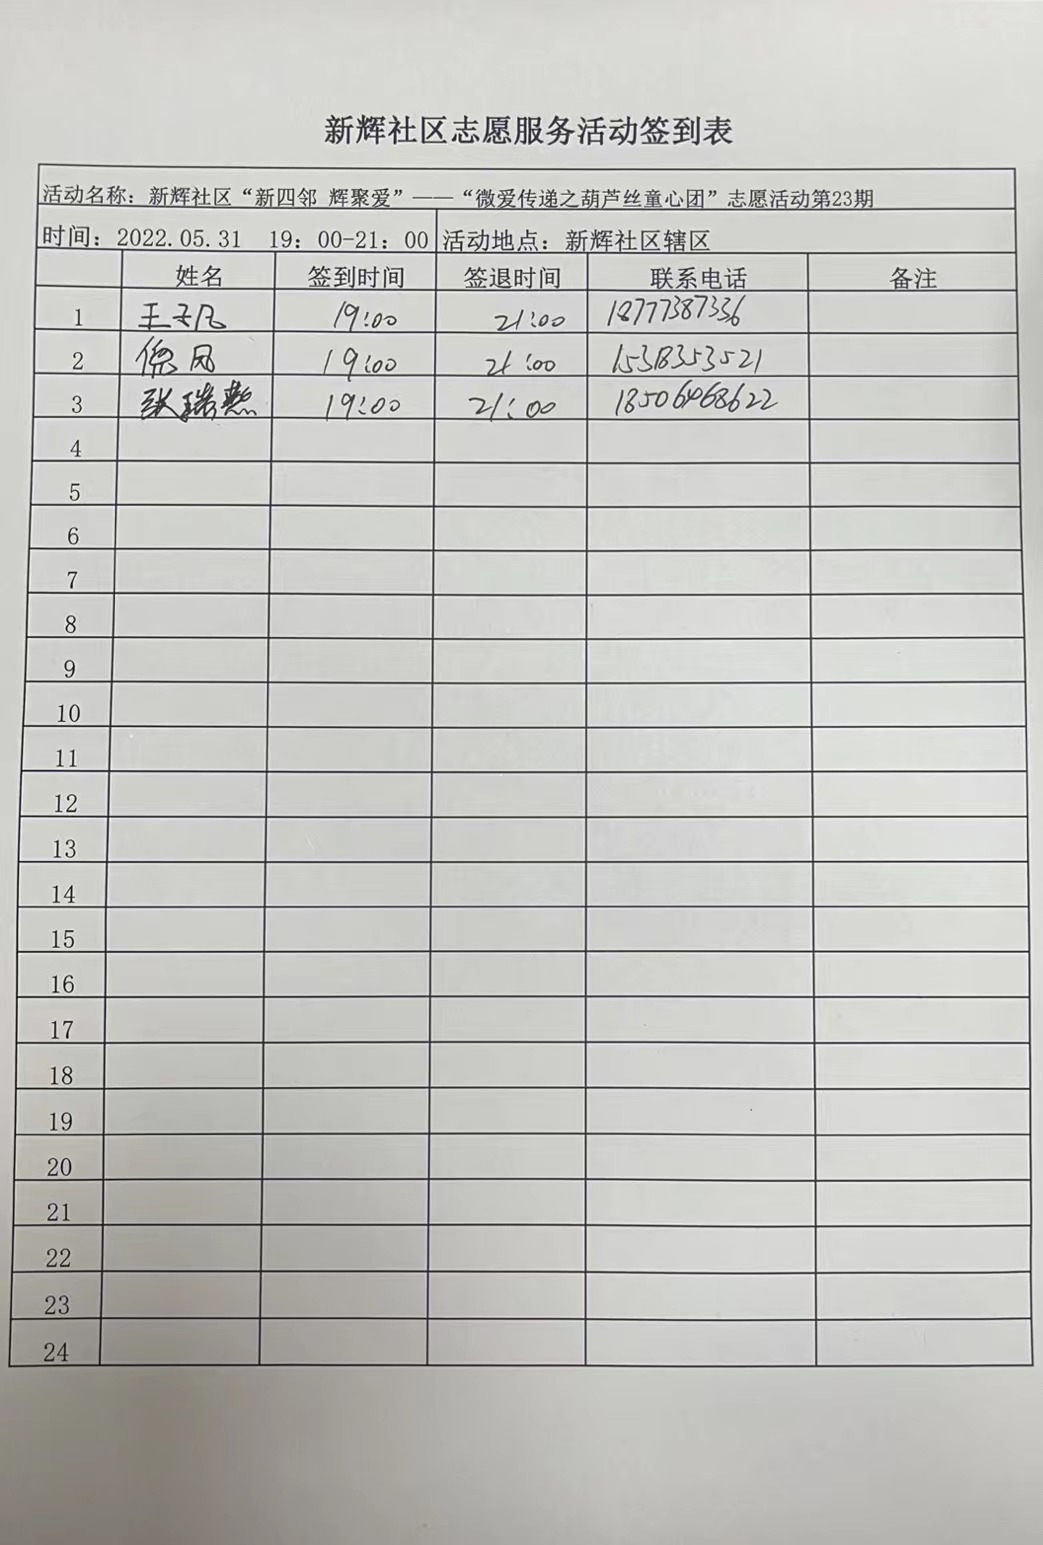 新辉社区志愿服务活动签到表
活动名称：新辉社区“新四邻 辉聚爱”——“微爱传递之葫芦丝童心团”志愿活动第23期
时间：2022.05.31 19：00-21：00 活动地点：新辉社区辖区
姓名 签到时间 签退时间 联系电话 备注
1 王子凡 19:00 21:00 18777387336
2 19:00 21:00 15318353521
3 张瑞 19:00 21:00 18506468622
4
5
6
7
8
9
10
11
12
13
14
15
16
17
18
19
20
21
22
23
24